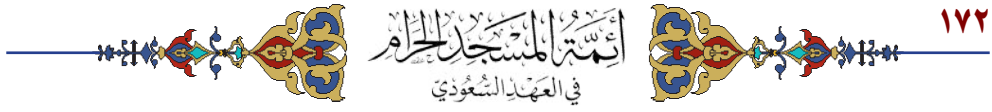 ١٧٢
أَئِمَّةُ المَسْجِدِ الحَرَامِ
في العَهْدِ السُّعُودِيّ